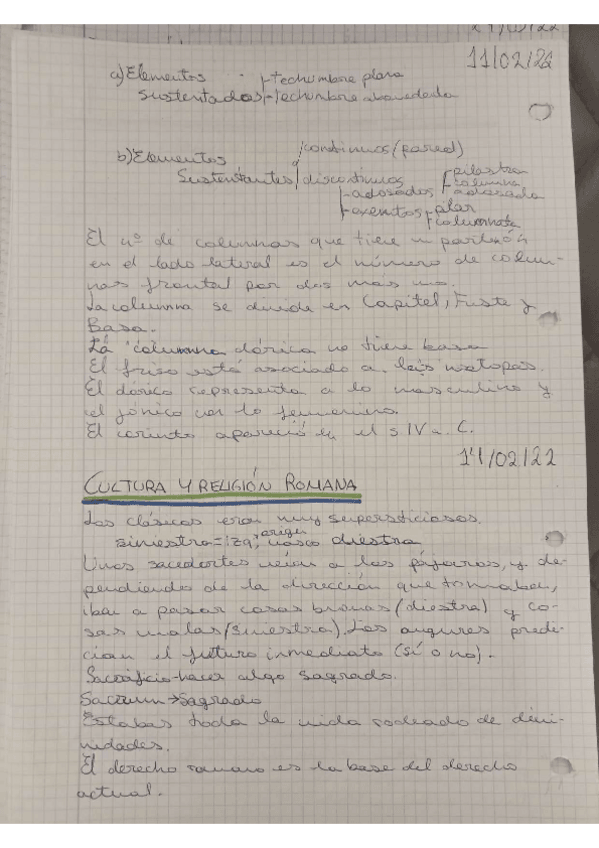 11/02/22
a) Elementos sustentados
techumbre plana
techumbre abovedada
b) Elementos sustentantes
continuos (pared)
discontinuos
adosados
pilastra
columna adosada
exentos
pilar
columnata
El nº de columnas que tiene un partenón
en el lado lateral es el número de colum-
nas frontal por dos más uno.
La columna se divide en Capitel, Fuste y
Basa.
La columna dórica no tiene basa
El friso está asociado a las metopas.
El dórico representa a lo masculino y
el jónico con lo femenino.
El corinto apareció en el s IV a. C.
14/02/22
CULTURA Y RELIGIÓN ROMANA
Los clásicos eran muy supersticiosos.
siniestra=izq, origen vasco diestra
Unos sacerdotes veían a los pájaros, y de-
pendiendo de la dirección que tomaba,
iba a pasar cosas buenas (diestra) y co-
sas malas (siniestra). Los augures prede-
cían el futuro inmediato (sí o no).
Sacrificio-hacer algo sagrado.
Sacrum→sagrado
Estabas toda la vida rodeado de divi-
nidades.
El derecho romano es la base del derecho
actual.